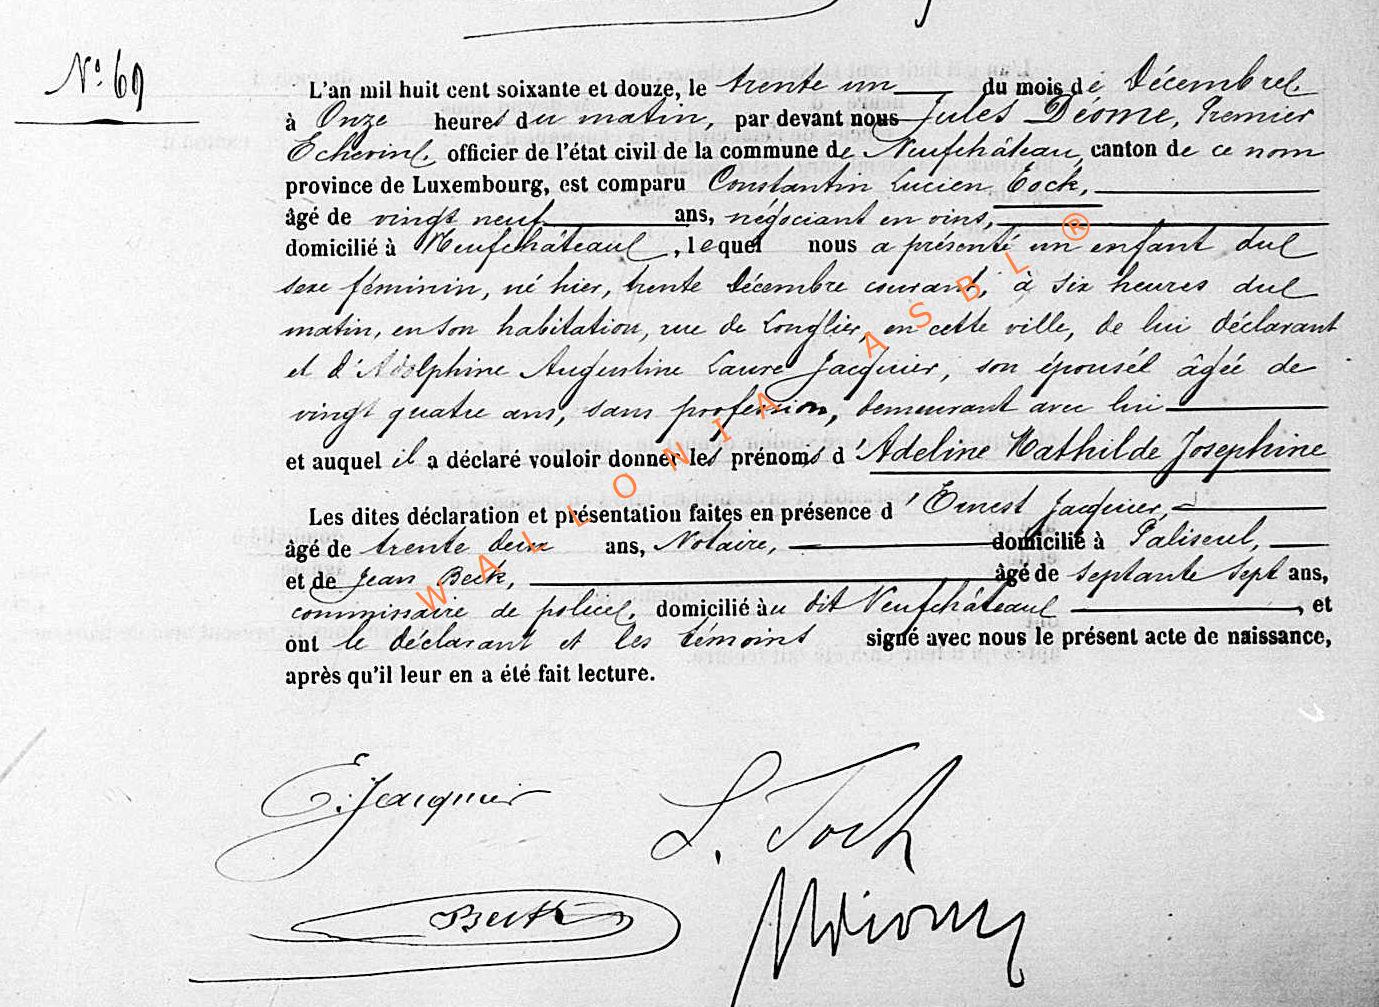 Nº 69
L'an mil huit cent soixante et douze, le trente un du mois de Décembre
à Onze heures du matin, par devant nous Jules Déome, Premier
Echevin, officier de l'état civil de la commune de Neufchâteau, canton de ce nom
province de Luxembourg, est comparu Constantin Lucien Tock,
âgé de vingt neuf ans, négociant en vins,
domicilié à Neufchâteau, lequel nous a présenté un enfant du
sexe féminin, né hier, trente Décembre courant, à six heures du
matin, en son habitation, rue de Longlier, en cette ville, de lui déclarant
et d'Adolphine Augustine Laure Jacquier, son épouse âgée de
vingt quatre ans, sans profession, demeurant avec lui
et auquel il a déclaré vouloir donner les prénoms d'Adeline Mathilde Josephine
Les dites déclaration et présentation faites en présence d'Ernest Jacquier,
âgé de trente deux ans, Notaire, domicilié à Paliseul,
et de Jean Beck, âgé de septante sept ans,
commissaire de police, domicilié au dit Neufchâteau, et
ont le déclarant et les témoins signé avec nous le présent acte de naissance,
après qu'il leur en a été fait lecture.
E. Jacquier
L. Tock
Beck
JDéome
WALLONIA ASBL ®